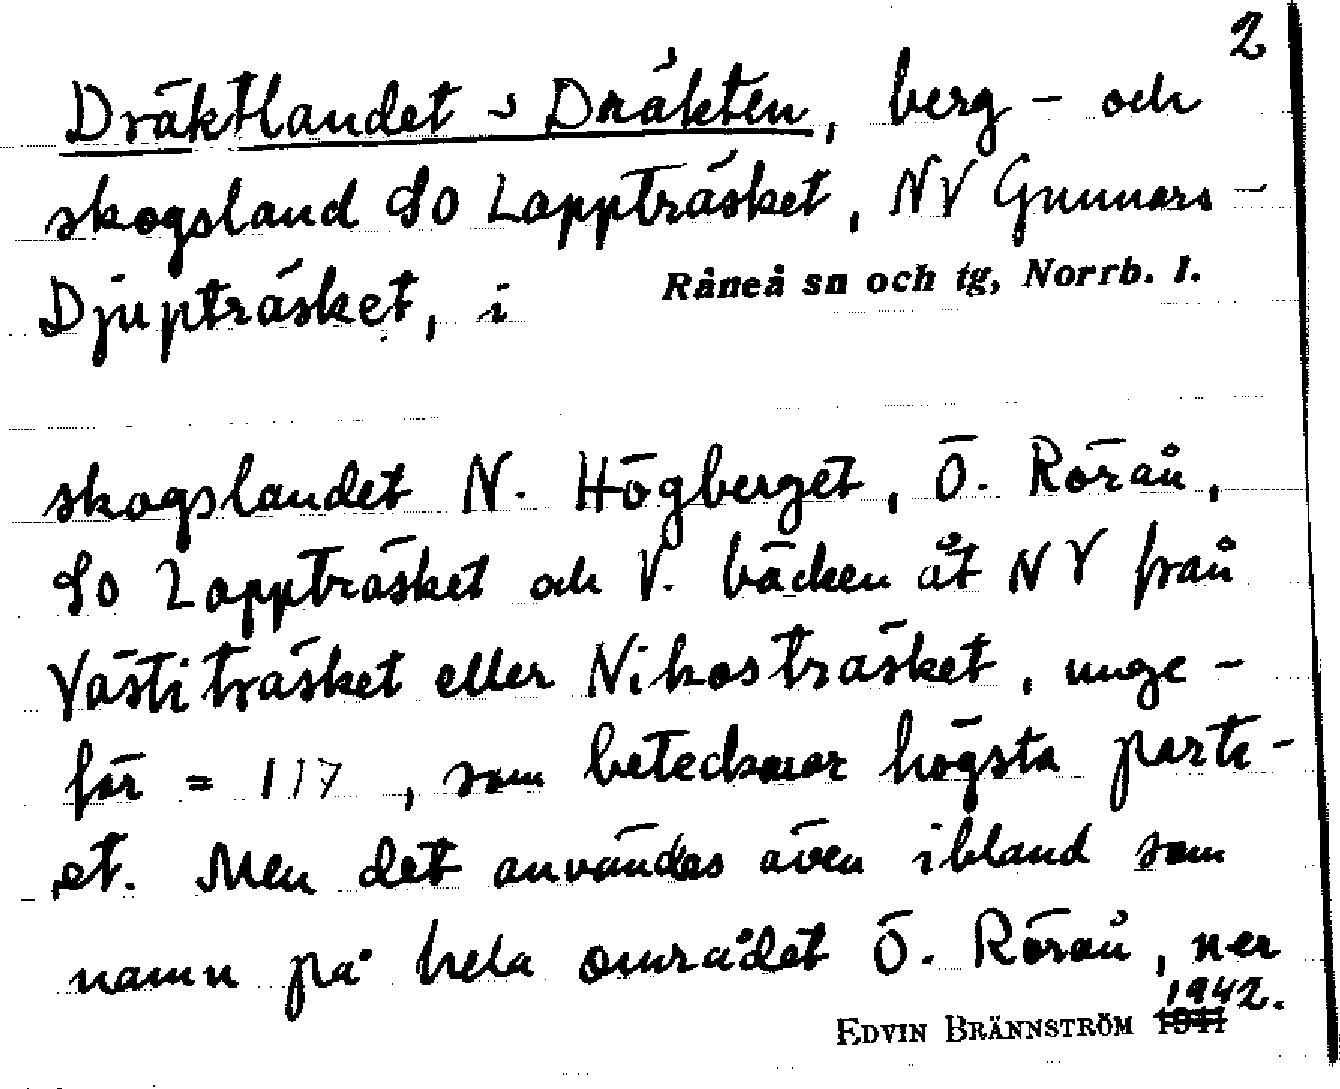 2
Dräktlandet ~ Dräkten, berg- och
skogsland SO Lappträsket, NV Gunnars-
Djupträsket, i Råneå sn och tg, Norrb. l.
skogslandet N. Högberget, Ö. Röràn,
SO Lappträsket och V. bäcken åt NV från
Västiträsket eller Nikosträsket, unge-
fär = 117, som betecknar högsta parti-
et. Men det användes även ibland som
namn på hela området Ö. Rörån, ner
EDVIN BRÄNNSTRÖM 1941 1942.